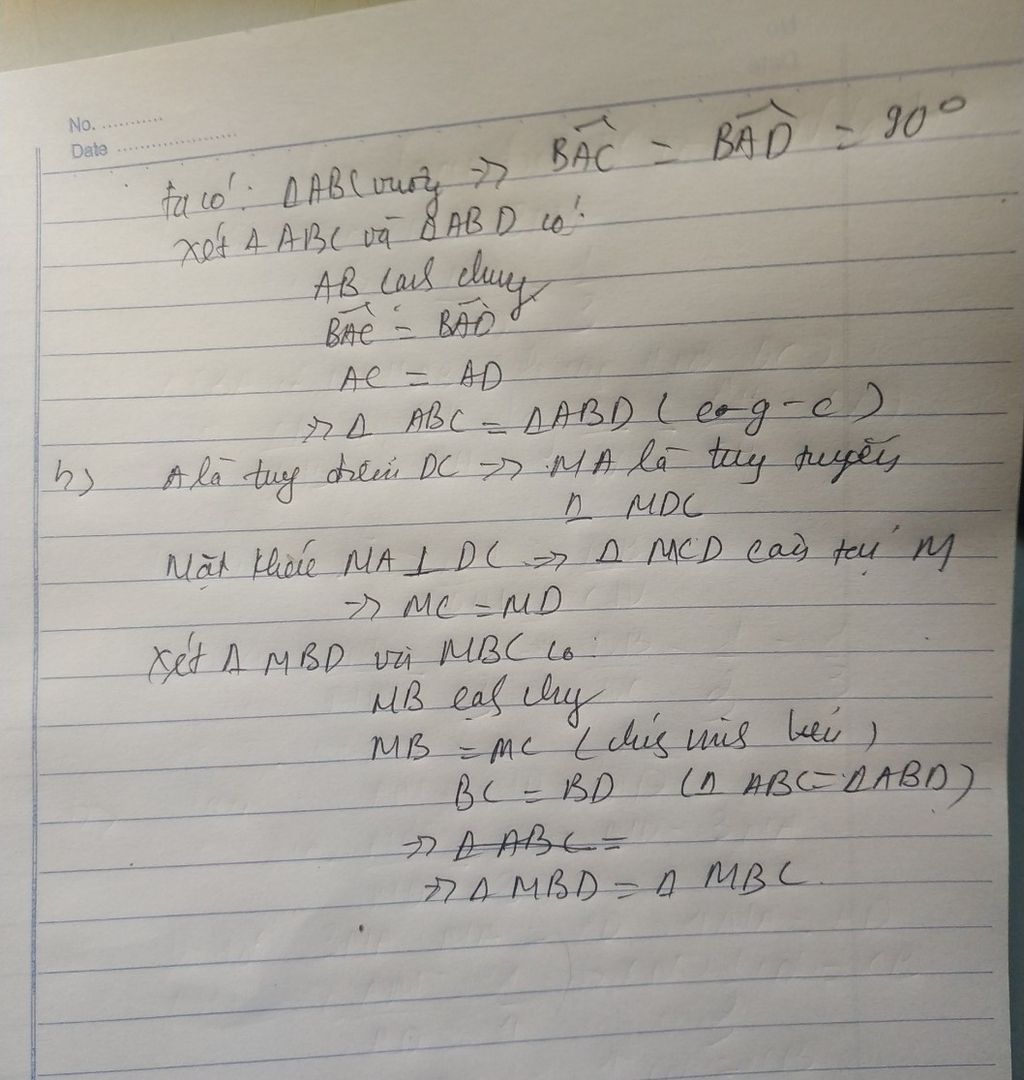 No. ............
Date ....................
Ta có: ΔABC vuông => BAC = BAD = 90°
Xét Δ ABC và ΔABD có:
AB cạnh chung
BAC = BAD
AC = AD
=> Δ ABC = ΔABD (c-g-c)
b) A là trung điểm DC => MA là trung tuyến
Δ MDC
Mặt khác MA ⊥ DC => Δ MCD cân tại M
=> MC = MD
Xét Δ MBD và MBC có:
MB cạnh chung
MB = MC (chứng minh trên)
BC = BD (Δ ABC = ΔABD)
=> Δ ABC =
=> Δ MBD = Δ MBC